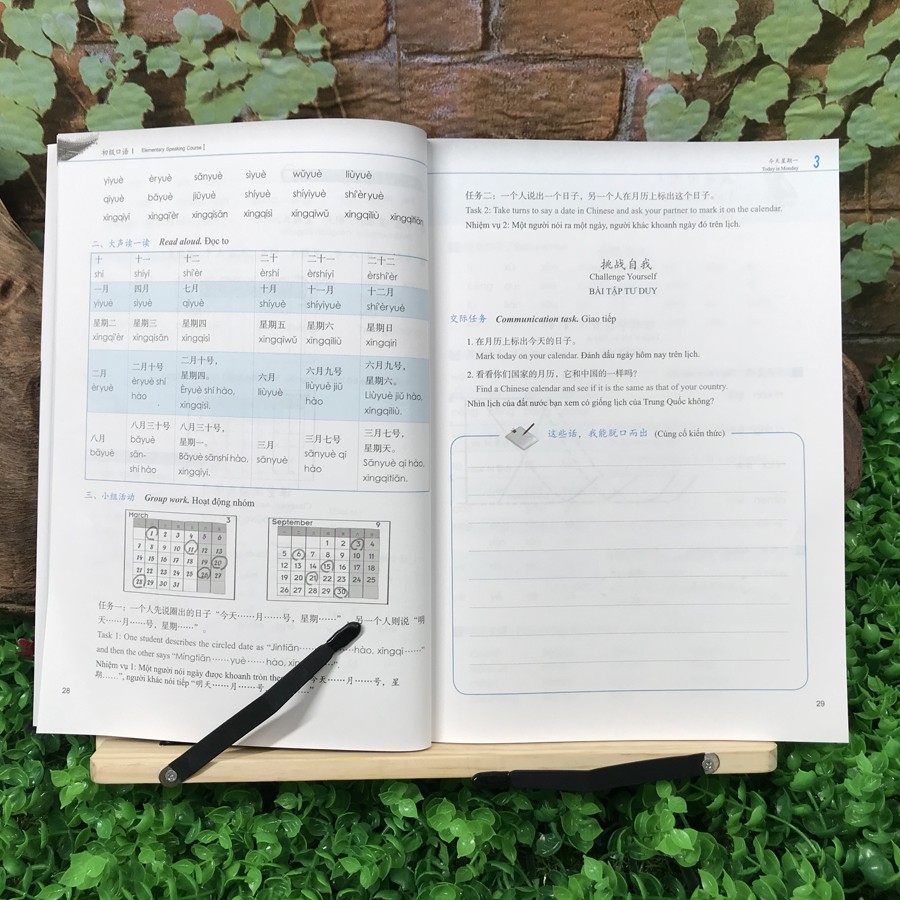 初级口语 I Elementary Speaking Course I
yīyuè èryuè sānyuè sìyuè wǔyuè liùyuè
qīyuè bāyuè jiǔyuè shíyuè shíyīyuè shí'èryuè
xīngqīyī xīngqī'èr xīngqīsān xīngqīsì xīngqīwǔ xīngqīliù xīngqītiān
二、大声读一读 Read aloud. Đọc to
十 十一 十二 二十 二十一 二十二
shí shíyī shí'èr èrshí èrshíyī èrshí'èr
一月 四月 七月 十月 十一月 十二月
yīyuè sìyuè qīyuè shíyuè shíyīyuè shí'èryuè
星期二 星期三 星期四 星期五 星期六 星期日
xīngqī'èr xīngqīsān xīngqīsì xīngqīwǔ xīngqīliù xīngqīrì
二月 二月十号 二月十号，星期四。 六月 六月九号 六月九号，星期六。
èryuè èryuè shí hào Èryuè shí hào, xīngqīsì. liùyuè liùyuè jiǔ hào Liùyuè jiǔ hào, xīngqīliù.
八月 八月三十号 八月三十号，星期一。 三月 三月七号 三月七号，星期天。
bāyuè bāyuè sān-shí hào Bāyuè sānshí hào, xīngqīyī. sānyuè sānyuè qī hào Sānyuè qī hào, xīngqītiān.
三、小组活动 Group work. Hoạt động nhóm
March 3
1 2 3 4 5 6
7 8 9 10 11 12 13
14 15 16 17 18 19 20
21 22 23 24 25 26 27
28 29 30 31
September 9
1 2 3 4
5 6 7 8 9 10 11
12 13 14 15 16 17 18
19 20 21 22 23 24 25
26 27 28 29 30
任务一：一个人先说圈出的日子“今天……月……号，星期……”，另一个人则说“明
天……月……号，星期……”。
Task 1: One student describes the circled date as “Jīntiān…… hào, xīngqī ……”
and then the other says “Míngtiān …… yuè …… hào, xīng
Nhiệm vụ 1: Một người nói ngày được khoanh tròn “今天……月……号，星
期……”, người khác nói tiếp “明天……月……号
28
今天星期一 3
Today is Monday
任务二：一个人说出一个日子，另一个人在月历上标出这个日子。
Task 2: Take turns to say a date in Chinese and ask your partner to mark it on the calendar.
Nhiệm vụ 2: Một người nói ra một ngày, người khác khoanh ngày đó trên lịch.
挑战自我
Challenge Yourself
BÀI TẬP TƯ DUY
交际任务 Communication task. Giao tiếp
1. 在月历上标出今天的日子。
Mark today on your calendar. Đánh dấu ngày hôm nay trên lịch.
2. 看看你们国家的月历，它和中国的一样吗？
Find a Chinese calendar and see if it is the same as that of your country.
Nhìn lịch của đất nước bạn xem có giống lịch của Trung Quốc không?
这些话，我能脱口而出 (Củng cố kiến thức)
29